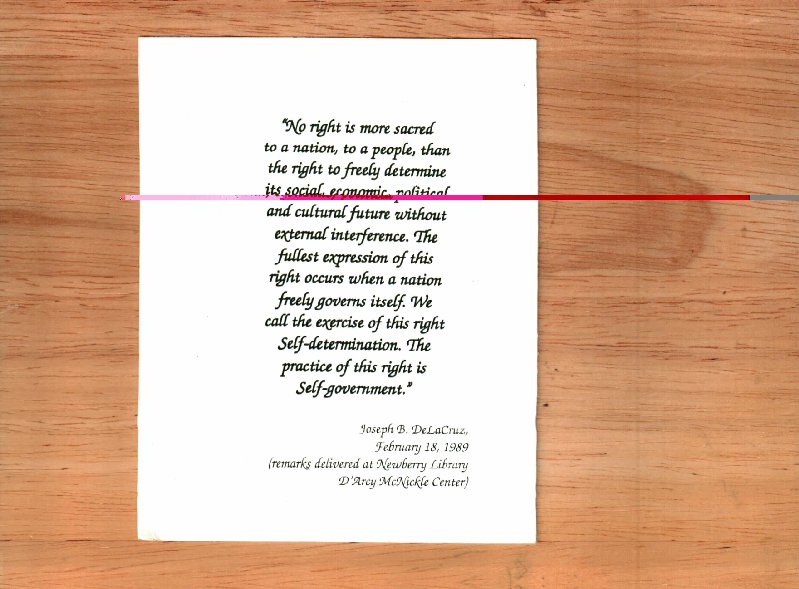 "No right is more sacred
to a nation, to a people, than
the right to freely determine
its social, economic, political
and cultural future without
external interference. The
fullest expression of this
right occurs when a nation
freely governs itself. We
call the exercise of this right
Self-determination. The
practice of this right is
Self-government."
Joseph B. DeLaCruz,
February 18, 1989
(remarks delivered at Newberry Library
D'Arcy McNickle Center)